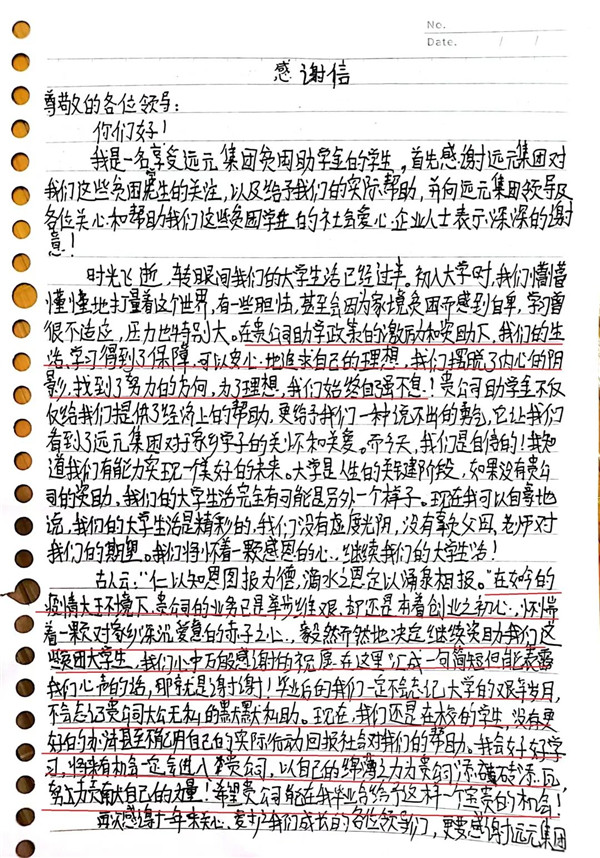 No.
Date. / /
感谢信
尊敬的各位领导:
你们好!
我是一名享受远元集团贫困助学金的学生,首先感谢远元集团对
我们这些贫困学生的关注,以及给予我们的实际帮助,并向远元集团领导及
各位关心和帮助我们这些贫困学生的社会爱心企业人士表示深深的谢
意!
时光飞逝,转眼间我们的大学生活已经过半。初入大学时,我们懵懵
懂懂地打量着这个世界,有一些胆怯,甚至会因为家境贫困而感到自卑,学习曾
很不适应,压力也特别大。在贵公司助学政策的激励和资助下,我们的生
活、学习得到了保障,可以安心地追求自己的理想,我们摆脱了内心的阴
影,找到了努力的方向,为了理想,我们始终自强不息!贵公司助学金不仅
仅给我们提供了经济上的帮助,更给予我们一种说不出的勇气,它让我们
看到了远元集团对于家乡学子的关怀和关爱。而今天,我们是自信的!我知
道我们有能力实现一个美好的未来。大学是人生的关键阶段,如果没有贵公
司的资助,我们的大学生活完全有可能是另外一个样子。现在我可以自豪地
说,我们的大学生活是精彩的,我们没有虚度光阴,没有辜负父母、老师对
我们的期望。我们将怀着一颗感恩的心,继续我们的大学生活!
古人云:“仁以知恩图报为德,滴水之恩定以涌泉相报。”在如今的
疫情大环境下,贵公司的业务已是举步维艰,却还是有着创业之初心,怀惴
着一颗对家乡深沉爱意的赤子之心,毅然而然地决定继续资助我们这
些贫困大学生,我们心中万般感谢的祝愿在这里汇成一句简短但能表露
我们心声的话,那就是谢谢!毕业后的我们一定不会忘记大学的艰辛岁月,
不会忘记贵公司大公无私的默默资助。现在,我们还是在校的学生,没有更
好的办法甚至不能用自己的实际行动回报社会对我们的帮助。我会好好学
习,将来有机会一定会进入贵公司,以自己的绵薄之力为贵公司添砖添瓦,
努力贡献自己的力量!希望贵公司能在我毕业后给予这样一个宝贵的机会!
再次感谢十年来关心、爱护我们成长的各位领导们,更要感谢远元集团